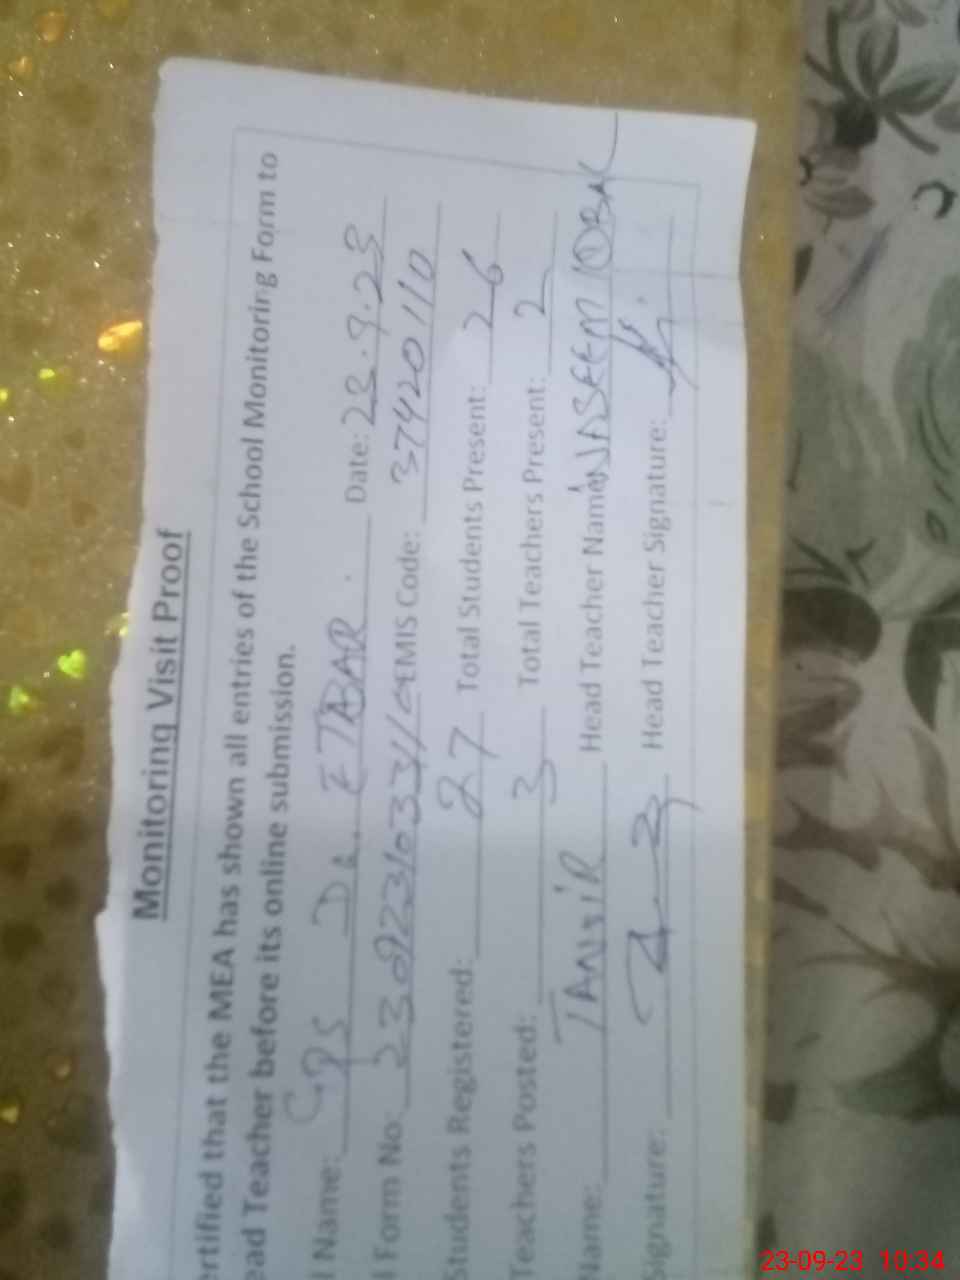 Monitoring Visit Proof
ertified that the MEA has shown all entries of the School Monitoring Form to
ead Teacher before its online submission.
l Name: GPS Dh. ETBAR. Date: 23.9.23
Form No: EMIS Code: 37420110
Students Registered: 27 Total Students Present: 26
Teachers Posted: 3 Total Teachers Present: 2
Name: TANviR Head Teacher Name NASEEM IQBAL
Signature: Head Teacher Signature:
23-09-23 10:34